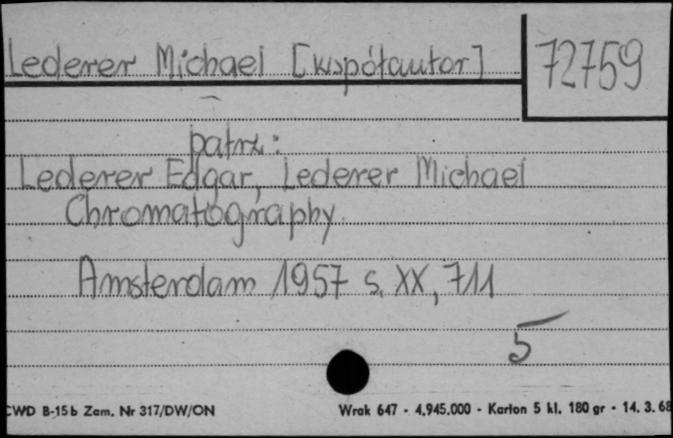 Lederer Michael [współautor]
72759
patrz:
Lederer Edgar, Lederer Michael
Chromatography
Amsterdam 1957 s. XX, 711
5
CWD B-15b Zam. Nr 317/DW/ON
Wrak 647 - 4.945.000 - Karton 5 kl. 180 gr - 14. 3. 68